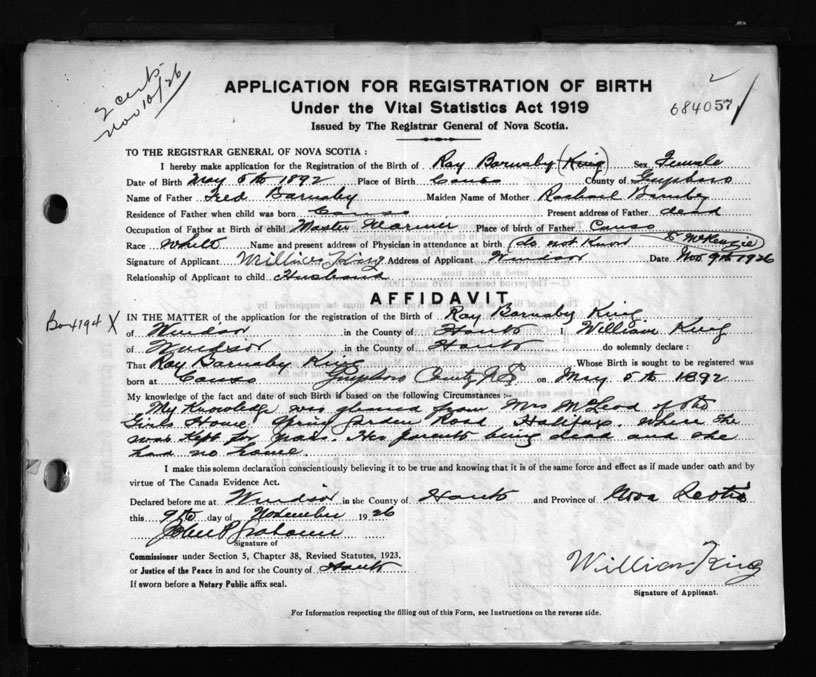 2 certs
Nov 10/26
APPLICATION FOR REGISTRATION OF BIRTH
Under the Vital Statistics Act 1919
Issued by The Registrar General of Nova Scotia.
684057
TO THE REGISTRAR GENERAL OF NOVA SCOTIA :
I hereby make application for the Registration of the Birth of Ray Barnaby (King) Sex Female
Date of Birth May 5th 1892 Place of Birth Canso County of Guysboro
Name of Father Fred Barnaby Maiden Name of Mother Rachael
Residence of Father when child was born Canso Present address of Father dead
Occupation of Father at Birth of child Master Mariner Place of birth of Father Canso
Race White Name and present address of Physician in attendance at birth (do not know Dr McKenzie)
Signature of Applicant William King Address of Applicant Windsor Date Nov 9th 1926
Relationship of Applicant to child Husband
AFFIDAVIT
Box 194 X
IN THE MATTER of the application for the registration of the Birth of Ray Barnaby King
of Windsor in the County of Hants I William King
of Windsor in the County of Hants do solemnly declare :
That Ray Barnaby King Whose Birth is sought to be registered was
born at Canso Guysboro County N.S. on May 5th 1892
My knowledge of the fact and date of such Birth is based on the following Circumstances :—
My Knowledge was gleaned from Mrs McLeod of the
Girls Home Spring Garden Road Halifax. Where she
was Kept for years. Her parents being dead and she
had no home.
I make this solemn declaration conscientiously believing it to be true and knowing that it is of the same force and effect as if made under oath and by
virtue of The Canada Evidence Act.
Declared before me at Windsor in the County of Hants and Province of Nova Scotia
this 9th day of November 1926
John P Graham
Signature of
Commissioner under Section 5, Chapter 38, Revised Statutes, 1923,
or Justice of the Peace in and for the County of Hants
If sworn before a Notary Public affix seal.
William King
Signature of Applicant.
For Information respecting the filling out of this Form, see Instructions on the reverse side.